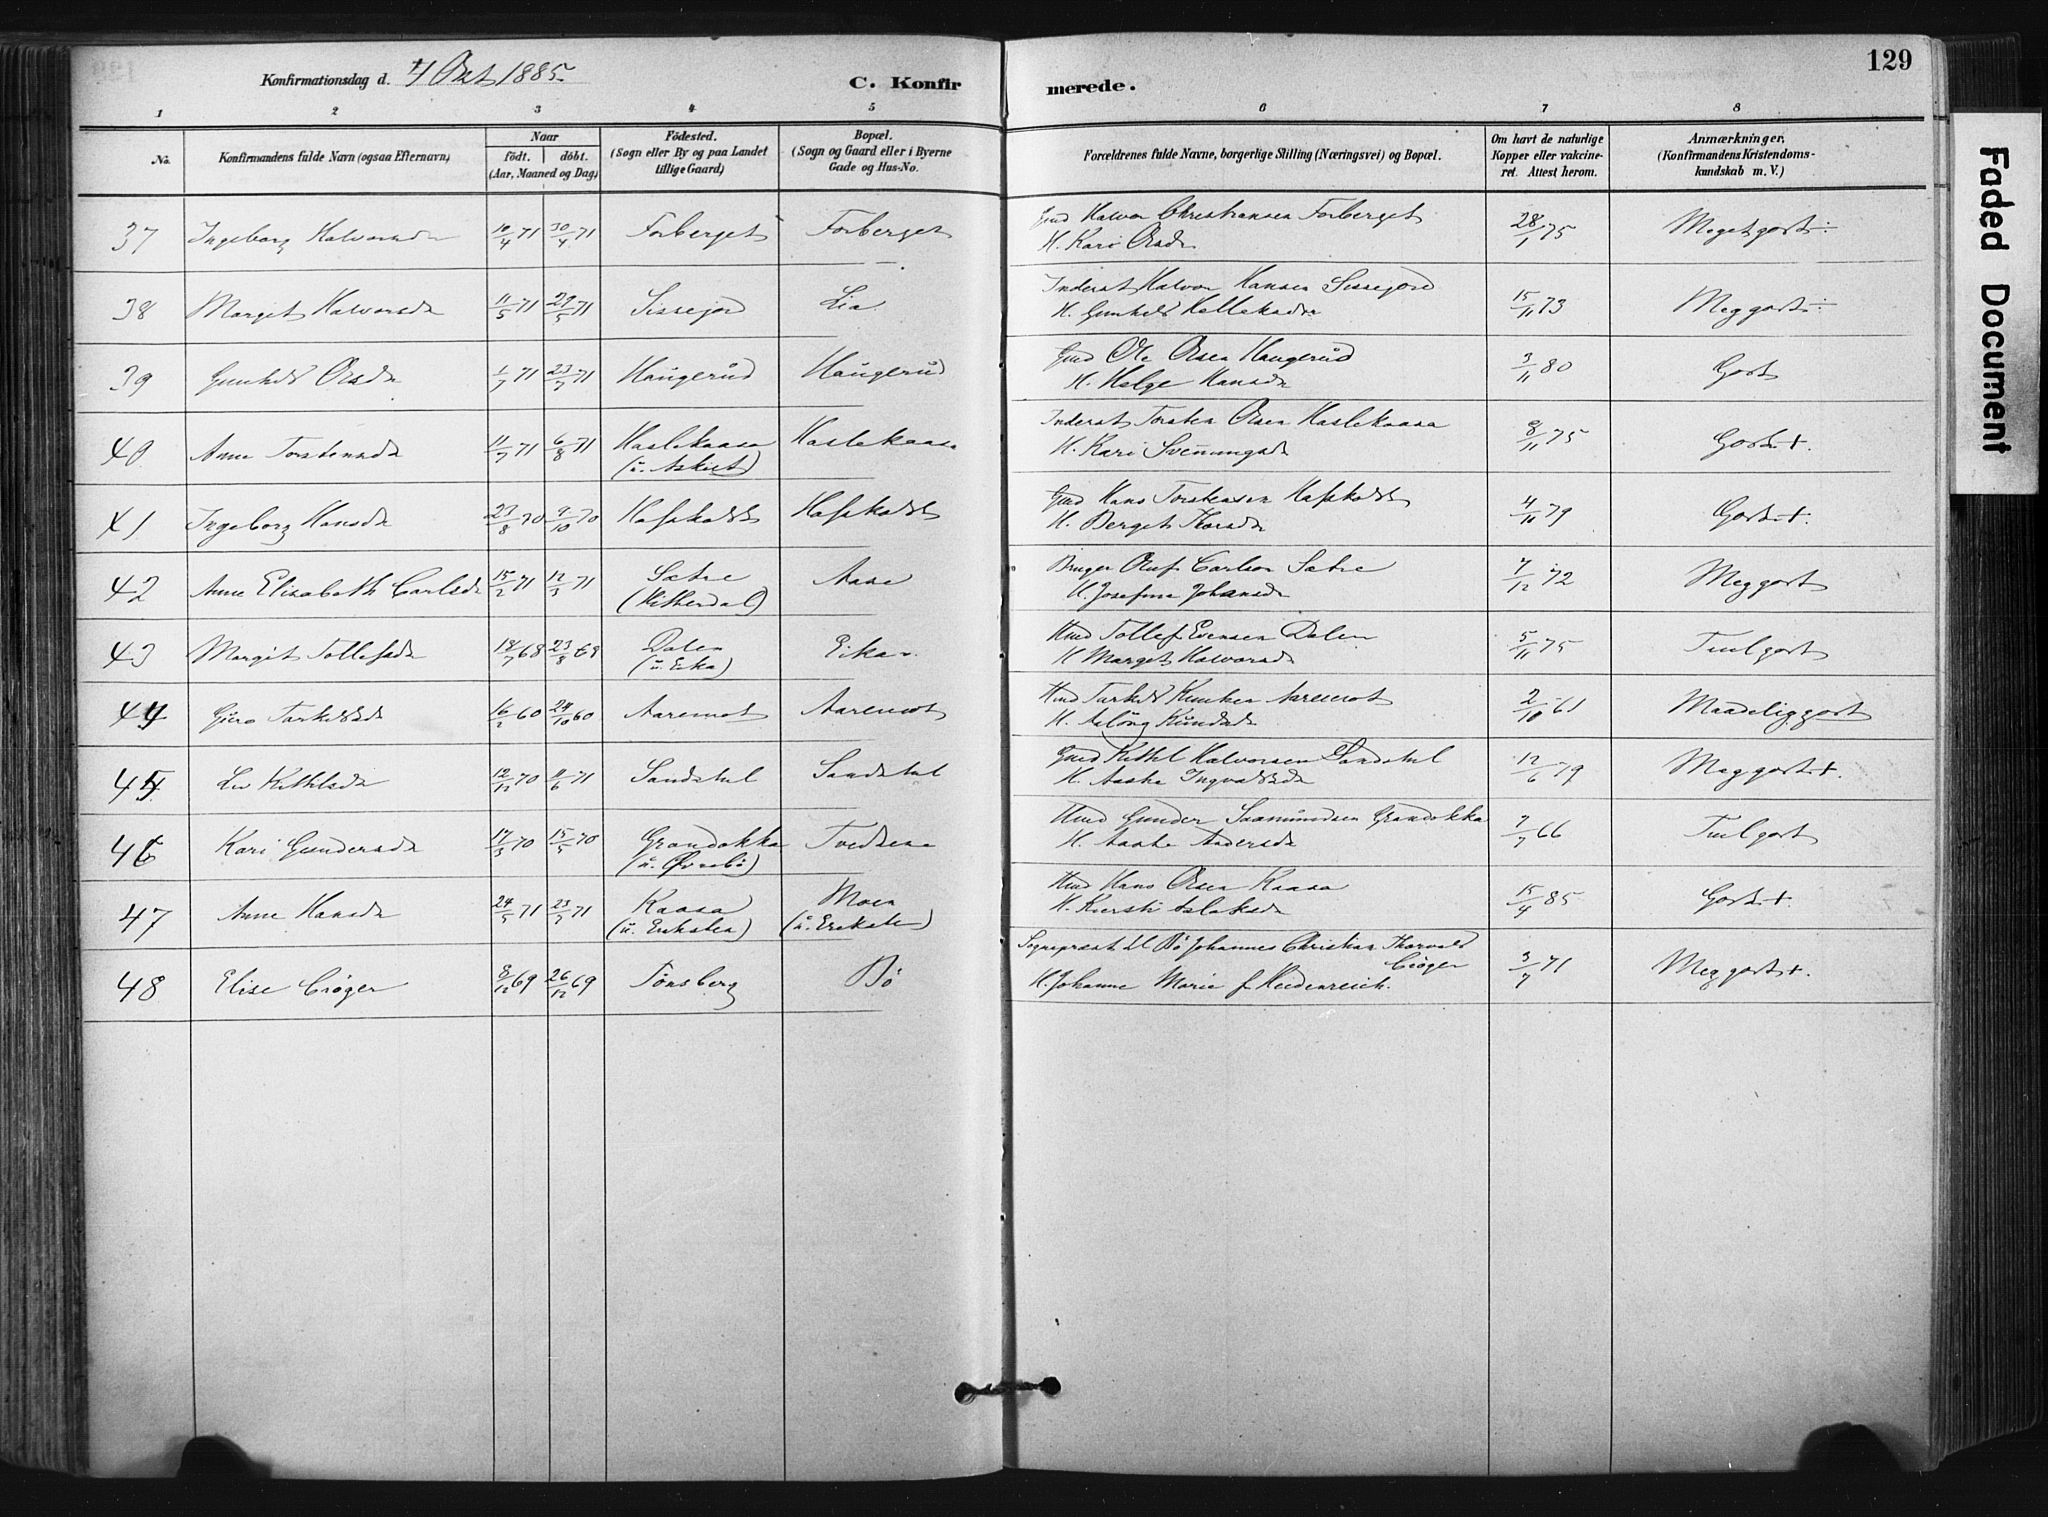 129
Konfirmationsdag d. 4 Okt 1885.
C. Konfirmerede.
1 2 3 4 5 6 7 8
No. Konfirmandens fulde Navn (ogsaa Efternavn) Naar födt. döbt. (Aar, Maaned og Dag) Födested. (Sogn eller By og paa Landet tillige Gaard) Bopæl. (Sogn og Gaard eller i Byerne Gade og Hus-No. Forældrenes fulde Navne, borgerlige Stilling (Næringsvei) og Bopæl. Om havt de naturlige Kopper eller vakcineret. Attest herom. Anmærkninger, (Konfirmandens Kristendomskundskab m. V.)
37 Ingeborg Halvorsdr 10/4 71 30/4 71 Forberget Forberget Gmd Halvor Christiansen Forberget 28/1 75 Meget godt ÷
H. Kari Olsdr
38 Marget Halvorsdr 11/5 71 29/5 71 Sissejord Lia Inderst Halvor Hansen Sissejord 15/11 73 Meg godt ÷
H. Gunhild Kelleksdr
39 Gunhild Olsdr 1/7 71 23/7 71 Haugerud Haugerud Gmd Ole Olsen Haugerud 3/11 80 Godt
H. Helge Hansdr
40 Anne Torstensdr 11/7 71 6/8 71 Haslekaasa Haslekaasa Inderst Torsten Olsen Haslekaasa 8/11 75 Godt +
(u. Askilt) H. Kari Svenungsdr
41 Ingeborg Hansdr 23/8 70 9/10 70 Hafskoldt Hafskoldt Gmd Hans Torstensen Hafskoldt 4/11 79 Godt +.
H. Berget Thorsdr
42 Anne Elisabeth Carlsdr 15/2 71 12/3 71 Sætre Aase Bruger Oluf Carlson Sætre 7/12 72 Meg godt
(Hitterdal) H. Josefine Johansdr
43 Margit Tollefsdr 18/7 68 23/8 68 Dalen Eika Hmd Tollef Evensen Dalen 5/11 75 Tmlgodt
(u. Eika) H Marget Halvorsdr
44 Gûro Tarkildsdr 16/2 60 24/10 60 Aaremot Aaremot Hmd Tarkild Aaremot 2/10 61 Maadelig godt
H. Aslöug
45 Liv Kittilsdr 12/12 70 11/6 71 Sandstul Sandstul Gmd Kittil Halvorsen Sandstul 12/6 79 Meg godt +.
H. Aaste Ingvaldsdr
46 Kari Gundersdr 17/3 70 15/5 70 Grandokka Tvedtene Hmd Gunder Saamundsen Grandokka 7/7 66 Tmlgodt
(u. Øvrebö) H. Aaste Andersdr
47 Anne Hansdr 24/5 71 23/7 71 Kaasa Moen Hmd Hans Olsen Kaasa 15/4 85 Godt +
(u. Erikstea) (u. Erikstei) H. Kiersti Aslaksdr
48 Elise Cröger 8/12 69 26/12 69 Tønsberg Bö Sogneprest til Bö Johannes Christian Thorvald Cröger 3/7 71 Meg godt +.
H. Johanne Marie f Heidenreich.
Faded Document